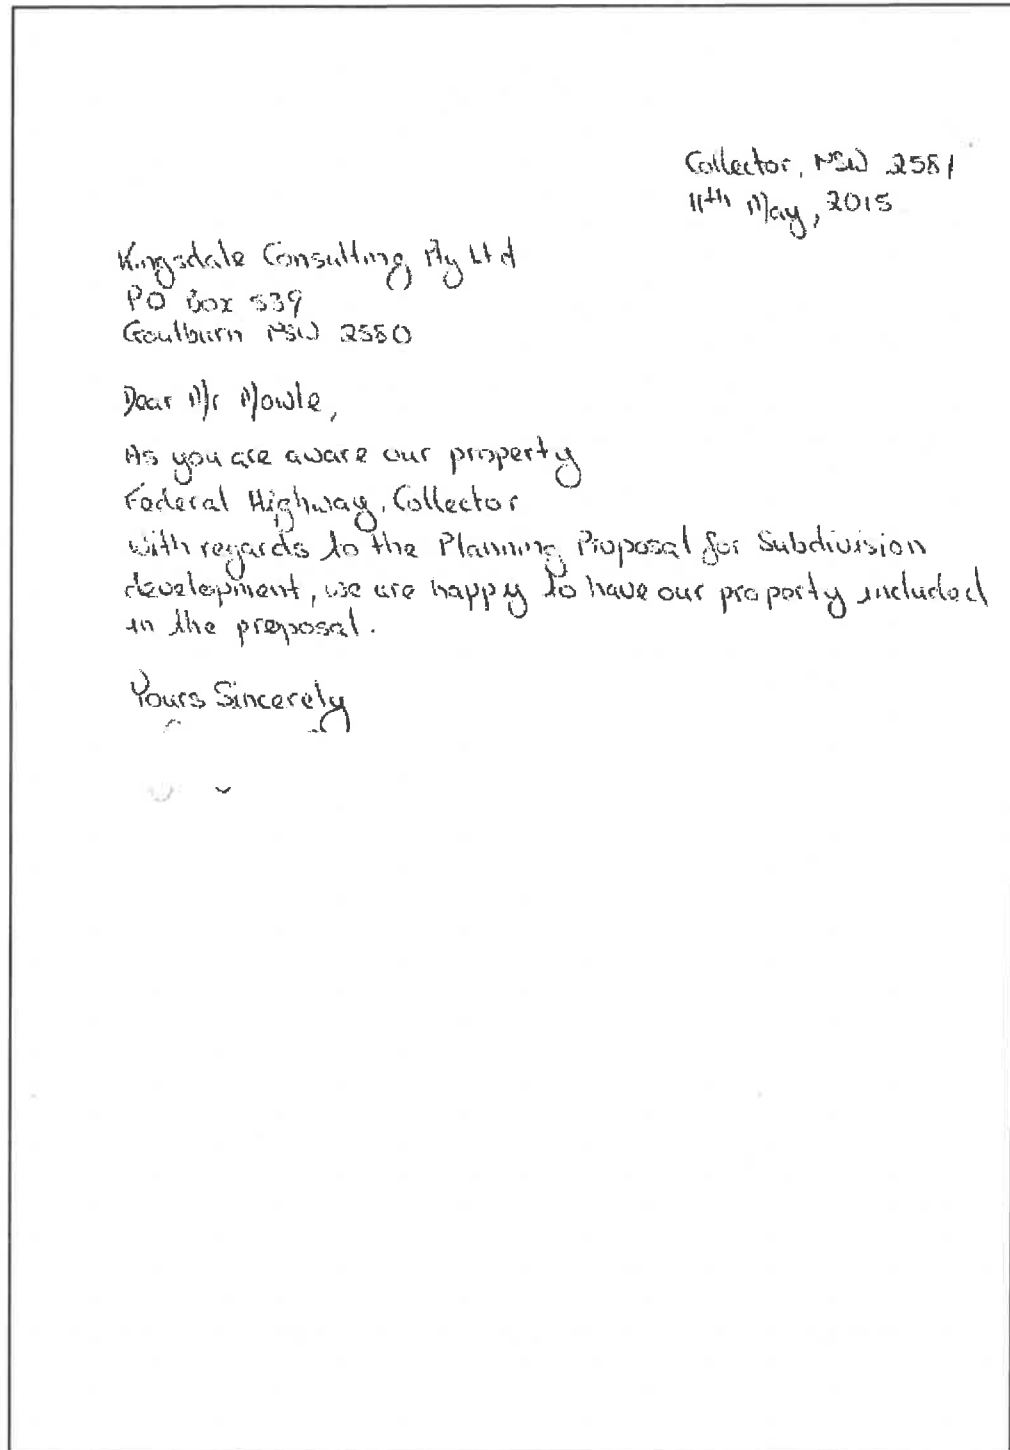 Collector, NSW 2581
11th May, 2015
Kingsdale Consulting Pty Ltd
PO Box 539
Goulburn NSW 2580
Dear Mr Mowle,
As you are aware our property
Federal Highway, Collector
with regards to the Planning Proposal for Subdivision
development, we are happy to have our property included
in the proposal.
Yours Sincerely